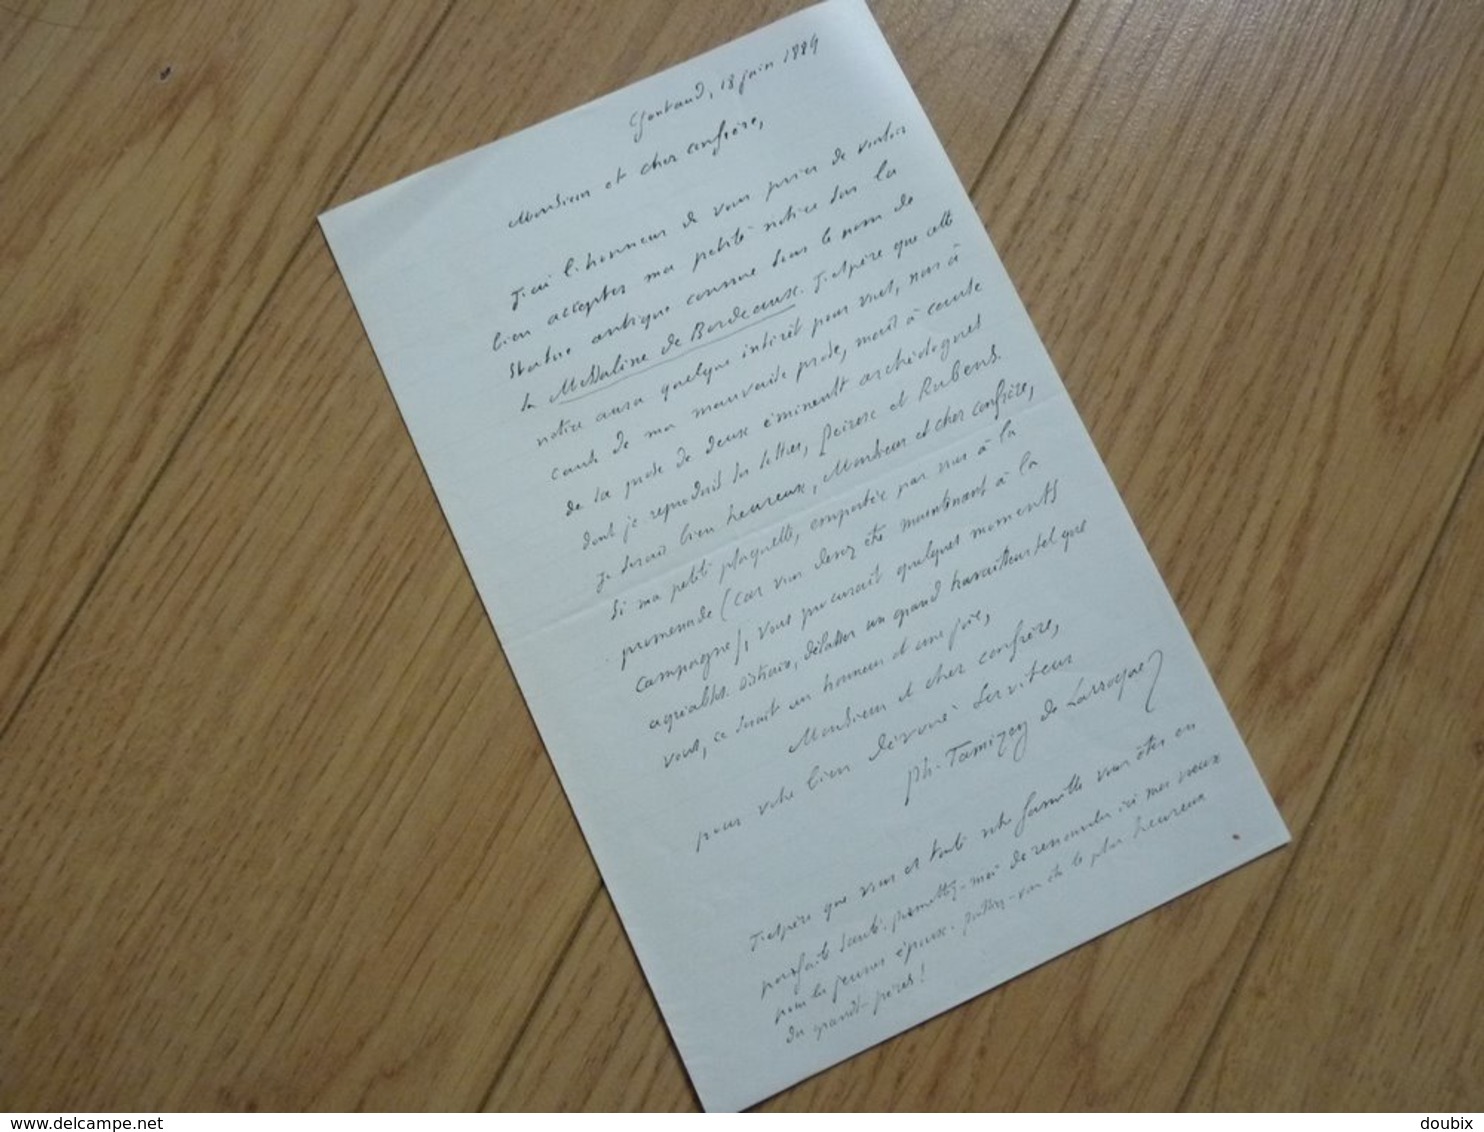 Gontaud, 18 juin 1884
Monsieur et cher confrère,
J'ai l'honneur de vous prier de vouloir
bien accepter ma petite notice sur la
statue antique connue sous le nom de
la Messaline de Bordeaux. J'espère que cette
notice aura quelque intérêt pour vous, non à
cause de ma mauvaise prose, mais à cause
de la prose de deux éminents archéologues
dont je reproduis les lettres, Peiresc et Rubens.
Je serais bien heureux, Monsieur et cher confrère,
si ma petite plaquette, emportée par vous à la
promenade (car vous devez être maintenant à la
campagne), vous procurait quelques moments
agréables. Distraire, délasser un grand travailleur tel que
vous, ce serait un honneur et une joie,
Monsieur et cher confrère,
pour votre bien dévoué serviteur
Ph. Tamizey de Larroque
J'espère que vous et toute votre famille vous êtes en
parfaite santé. Permettez-moi de renouveler ici mes vœux
pour les jeunes époux. Puissiez-vous être le plus heureux
des grands-pères!
delcampe.net
doubix